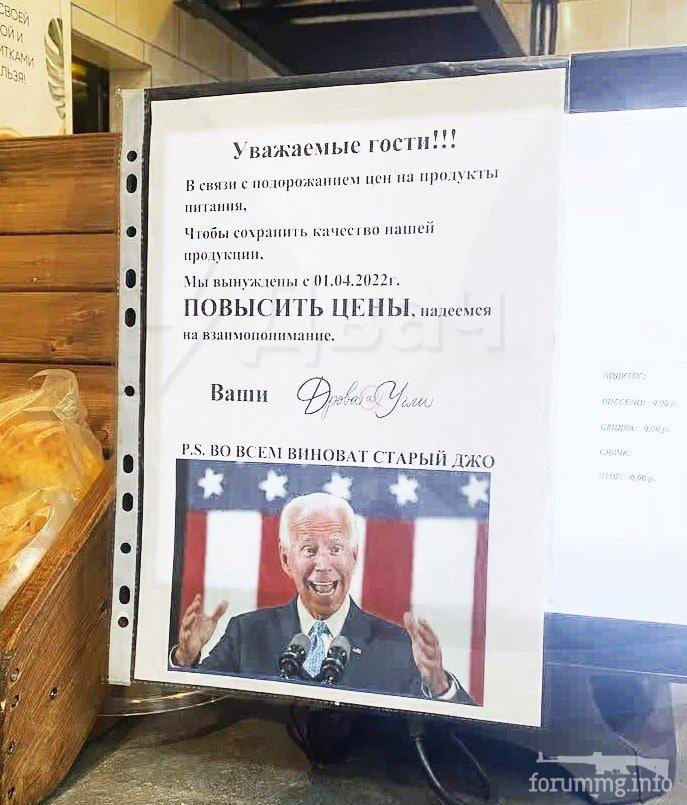 СВОЕЙ
ОЙ И
ИТКАМИ
ЛЬЗЯ!
Уважаемые гости!!!
В связи с подорожанием цен на продукты
питания,
Чтобы сохранить качество нашей
продукции,
Мы вынуждены с 01.04.2022г.
ПОВЫСИТЬ ЦЕНЫ, надеемся
на взаимопонимание.
Двач
Ваши Дрова и Угли
P.S. ВО ВСЕМ ВИНОВАТ СТАРЫЙ ДЖО
ПОДЫТОГ:
ВНЕСЕНО: 0,00 р.
СКИДКА: 0,00 р.
СДАЧА:
ИТОГ: 0,00 р.
forummg.info